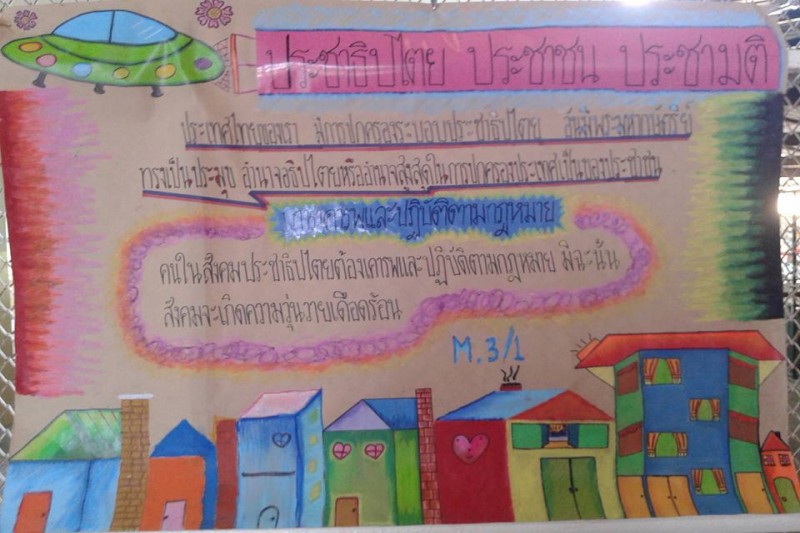 ประชาธิปไตย ประชาชน ประชามติ
ประเทศไทยของเรา มีการปกครองระบอบประชาธิปไตย อันมีพระมหากษัตริย์
ทรงเป็นประมุข อำนาจอธิปไตยหรืออำนาจสูงสุดในการปกครองประเทศเป็นของประชาชน
การเคารพและปฏิบัติตามกฎหมาย
คนในสังคมประชาธิปไตยต้องเคารพและปฏิบัติตามกฎหมาย มิฉะนั้น
สังคมจะเกิดความวุ่นวายเดือดร้อน
M.3/1